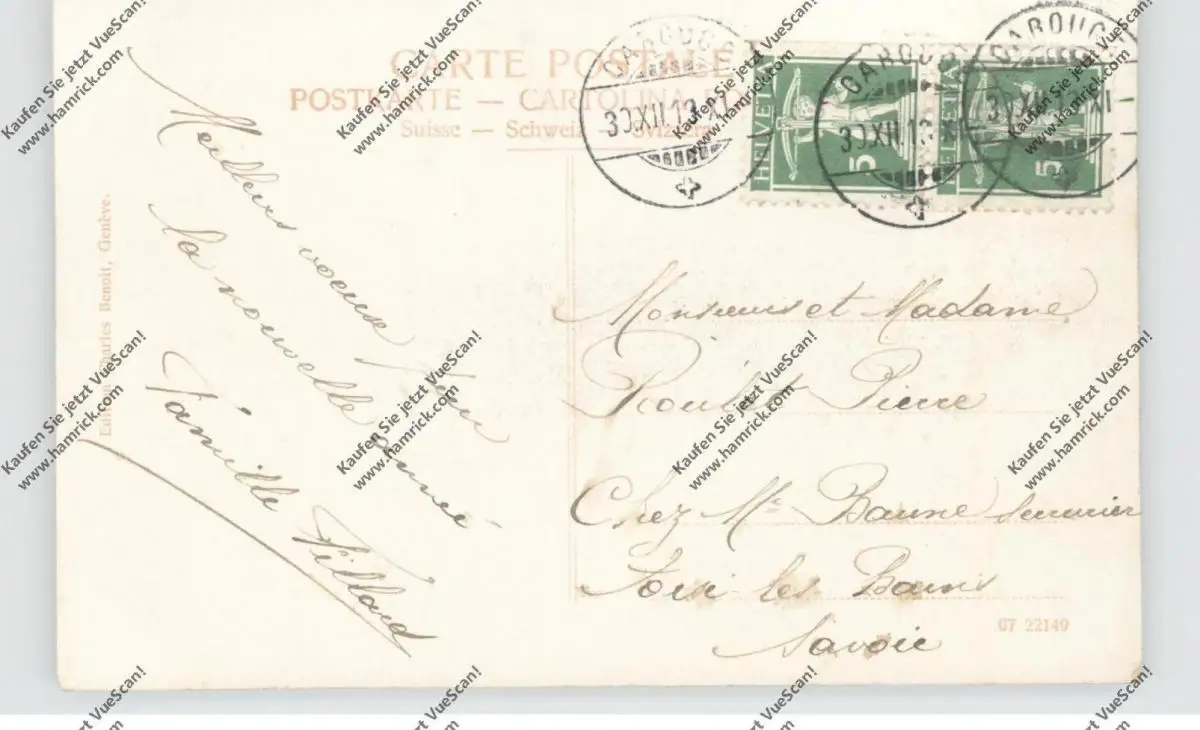 CARTE POSTALE
POSTKARTE — CARTOLINA PO
Suisse — Schweiz — Svizzera
CAROUGE
30.XII.13.XI
HELVETIA
5
CAROUGE
30.XII.13.XI
HELVETIA
5
CAROUGE
30.XII.13.XI
Meilleurs voeux pour
la nouvelle année
Famille Fillard
Monsieur et Madame
Pierre
Chez Mr Baune Serrurier
les Bains
Savoie
Edition Charles Benoit, Genève.
G7 22149
Kaufen Sie jetzt VueScan!
www.hamrick.com
Kaufen Sie jetzt VueScan!
www.hamrick.com
Kaufen Sie jetzt VueScan!
www.hamrick.com
Kaufen Sie jetzt VueScan!
www.hamrick.com
Kaufen Sie jetzt VueScan!
www.hamrick.com
Kaufen Sie jetzt VueScan!
www.hamrick.com
Kaufen Sie jetzt VueScan!
www.hamrick.com
Kaufen Sie jetzt VueScan!
www.hamrick.com